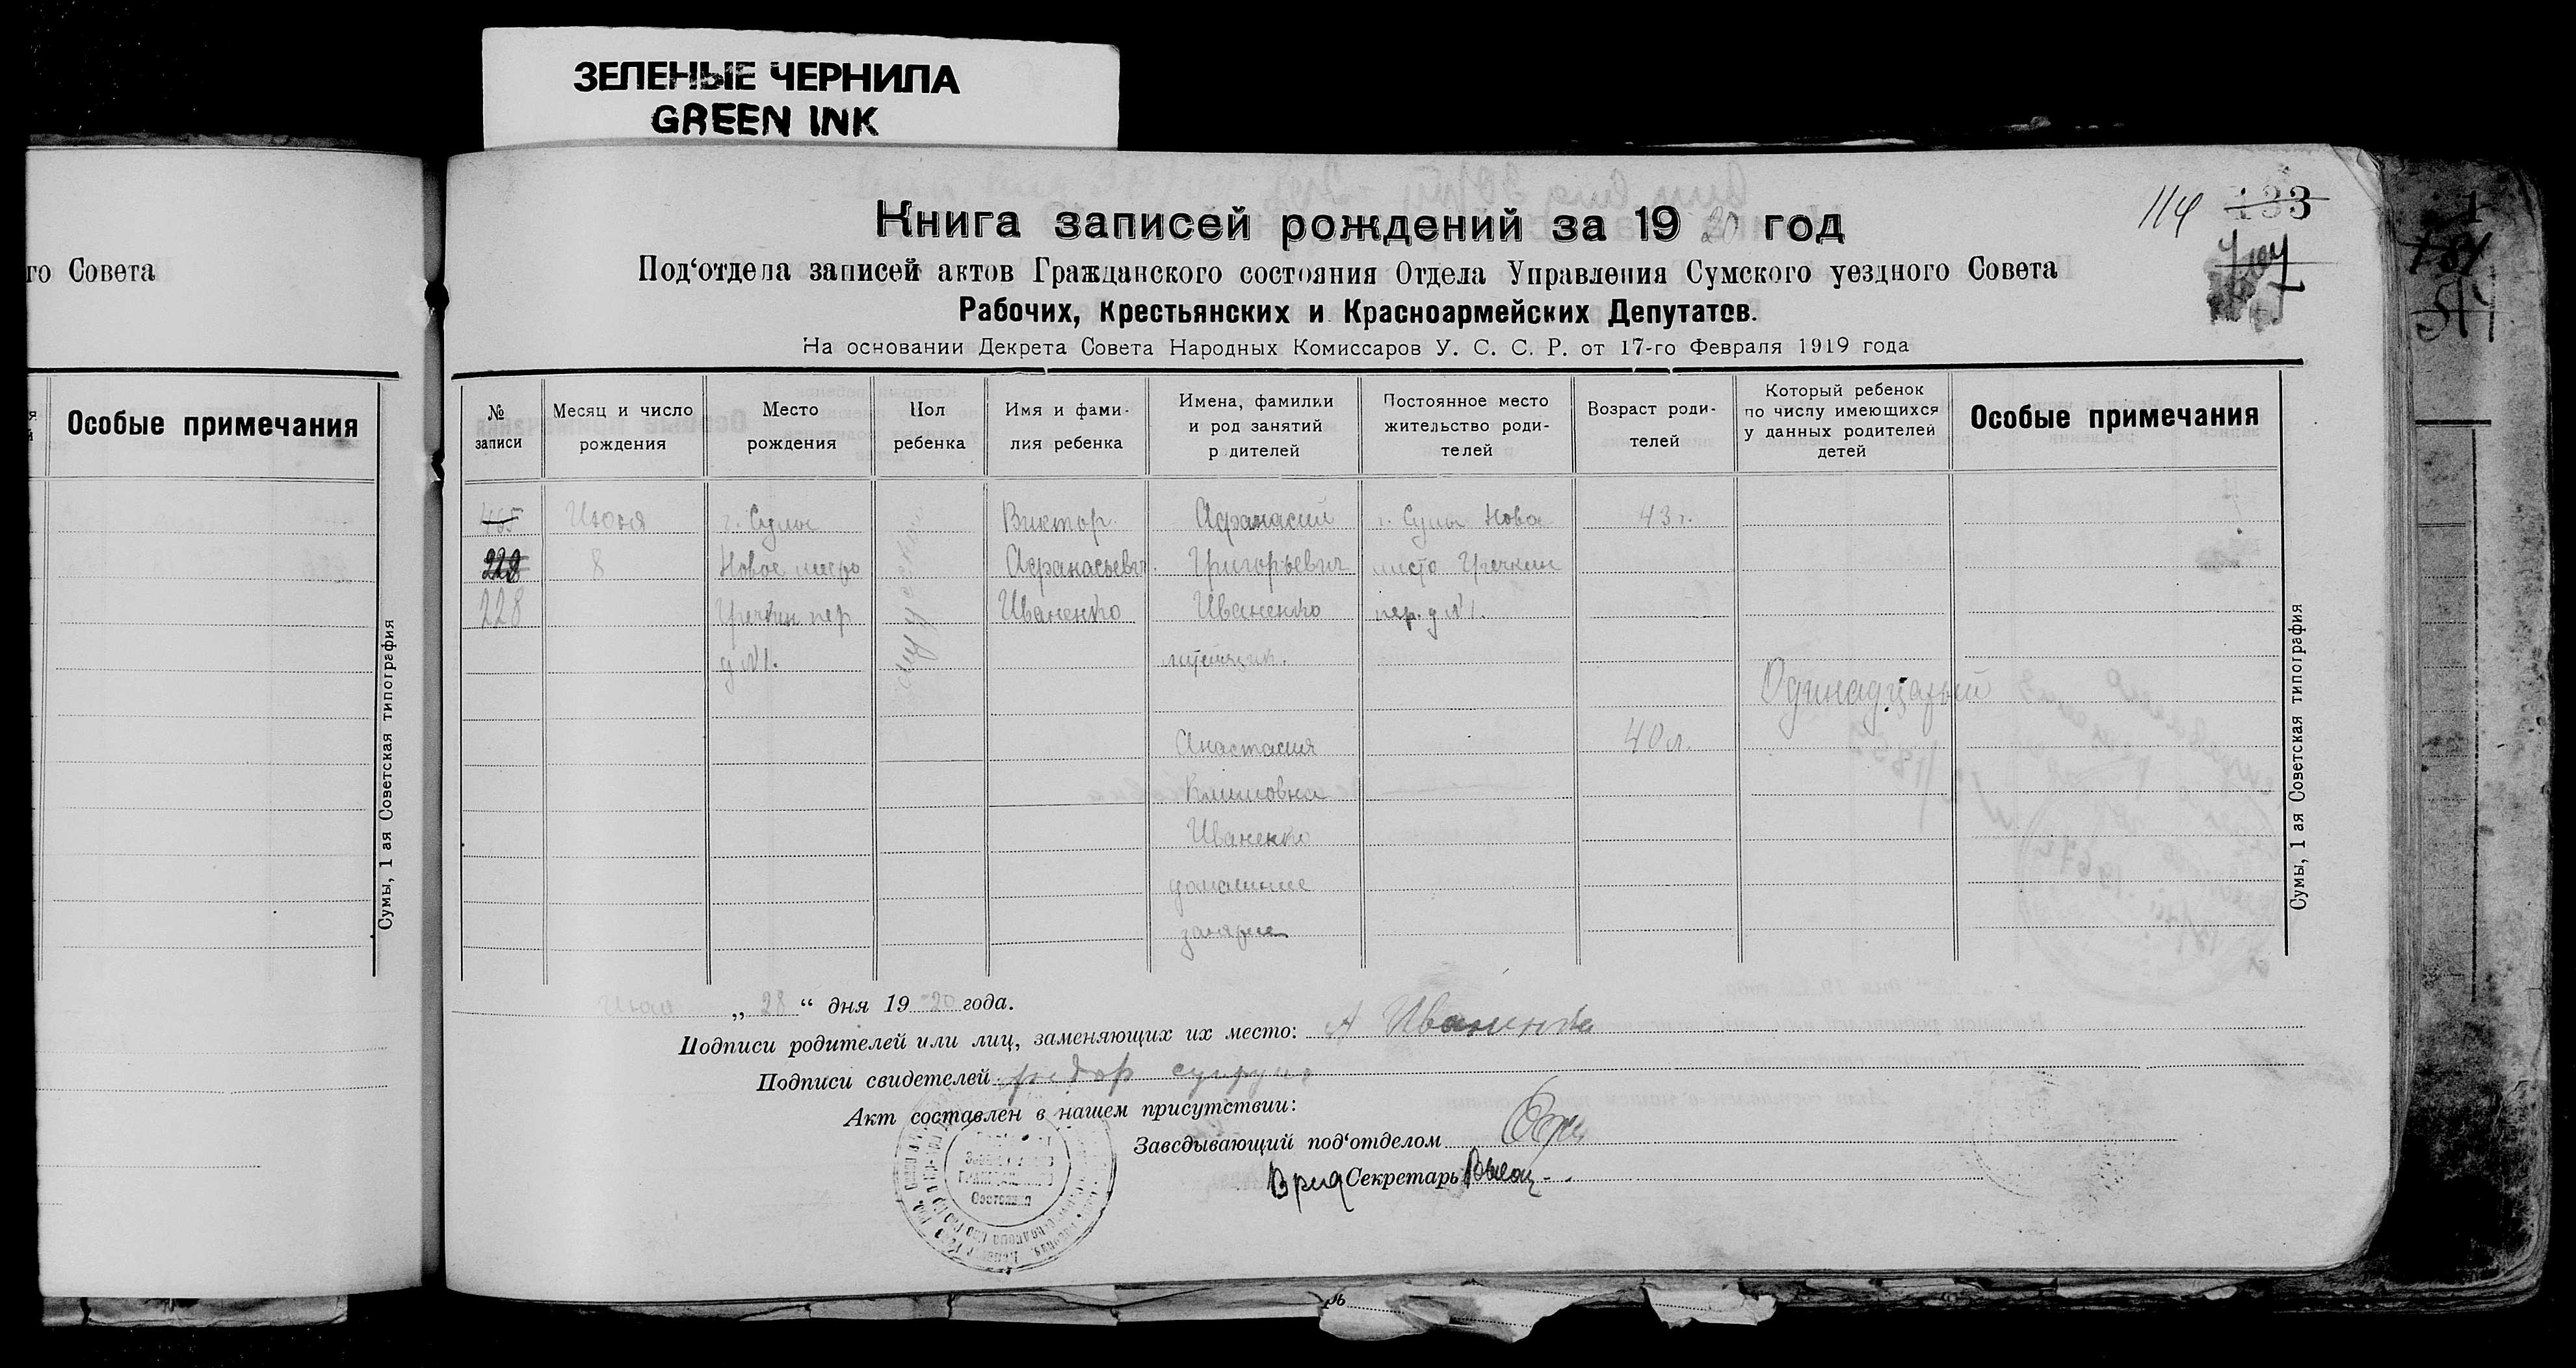 ЗЕЛЕНЫЕ ЧЕРНИЛА
GREEN INK
го Совета
Особые примечания
Сумы, 1 ая Советская типография
114 133
Книга записей рождений за 1920 год
Под‘отдела записей актов Гражданского состояния Отдела Управления Сумского уездного Совета
Рабочих, Крестьянских и Красноармейских Депутатов.
На основании Декрета Совета Народных Комиссаров У. С. С. Р. от 17-го Февраля 1919 года
№ записи
Месяц и число рождения
Место рождения
Пол ребенка
Имя и фами-
лия ребенка
Имена, фамилии
и род занятий
р дителей
Постоянное место
жительство роди-
телей
Возраст роди-
телей
Который ребенок
по числу имеющихся
у данных родителей
детей
Особые примечания
465
228
228
Июня
8
г. Сумы
Новое место
Гречкин пер
д №1.
мужской
Виктор
Афанасьевич
Иваненко
Афанасий
Григорьевич
Иваненко
Анастасия
Климовна
Иваненко
домашние
занятие
г. Сумы Ново
место Гречкин
пер. д №1.
43 г.
40 л.
Одинадцатый
Сумы, 1 ая Советская типография
„ 28 “ дня 1920 года.
Подписи родителей или лиц, заменяющих их место: А Иваненко
Подписи свидетелей
Акт составлен в нашем присутствии:
Заведывающий под‘отделом
Врид Секретарь
Состояния